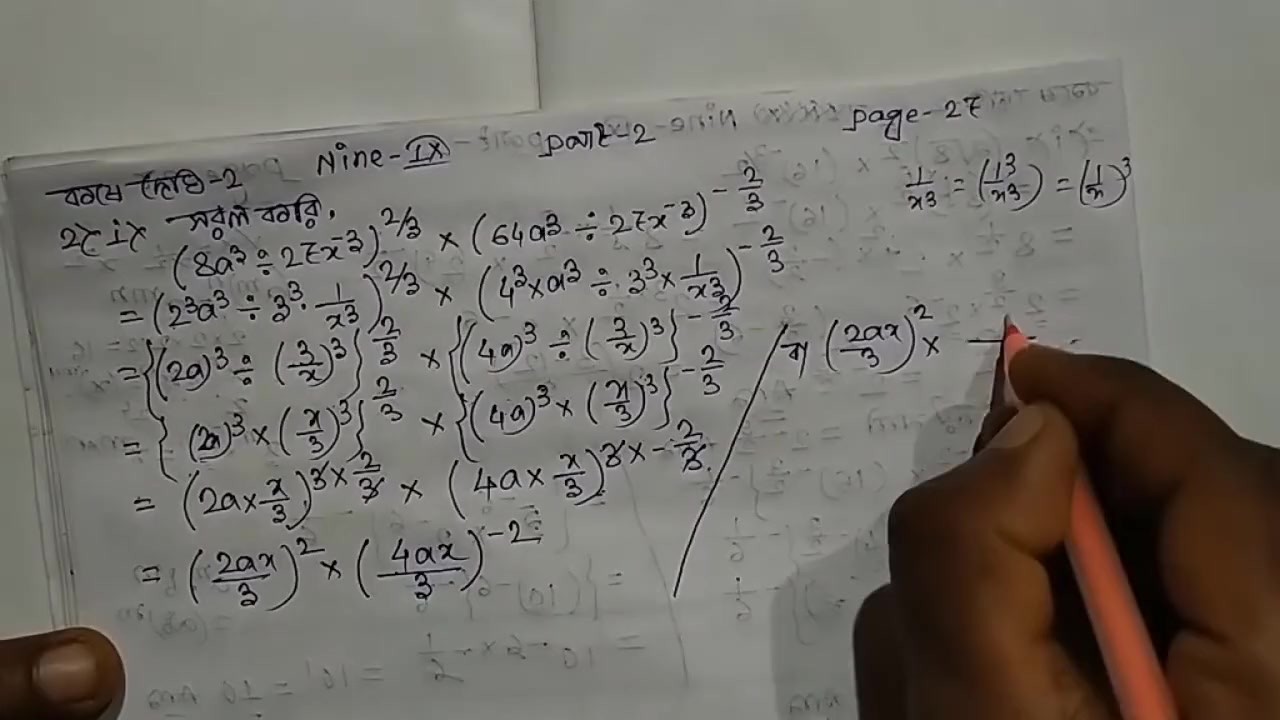 Nine-IX part-2 page-27
কষে দেখি-2
2ৎ ix সরল করি.
(8a³ ÷ 27x⁻³)^2/3 × (64a³ ÷ 27x⁻³)^-2/3
1/x³ = (1³/x³) = (1/x)³
= (2³a³ ÷ 3³·1/x³)^2/3 × (4³×a³ ÷ 3³×1/x³)^-2/3
= {(2a)³ ÷ (3/x)³}^2/3 × {(4a)³ ÷ (3/x)³}^-2/3
= {(2a)³ × (x/3)³}^2/3 × {(4a)³ × (x/3)³}^-2/3
= (2a×x/3)^3×2/3 × (4a×x/3)^3×-2/3
= (2ax/3)² × (4ax/3)⁻²
বা (2ax/3)² ×